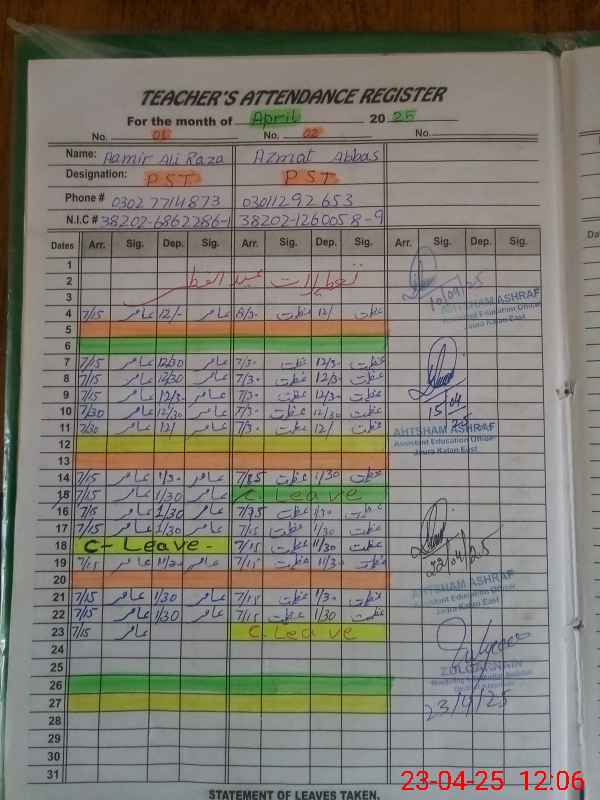 TEACHER'S ATTENDANCE REGISTER
For the month of April 20 25
No. 01 No. 02 No.
Name: Aamir Ali Raza Azmat Abbas
Designation: PST PST
Phone # 0302 7714873 03011292653
N.I.C # 38202-6862286-1 38202-1260058-9
Dates Arr. Sig. Dep. Sig. Arr. Sig. Dep. Sig. Arr. Sig. Dep. Sig.
1
2 تعطیلات عید الفطر
3
4 7/15 عامر 12/- عامر عظمت 12/ عظمت
5
6
7 7/15 عامر 12/30 عامر 7/30 عظمت 12/30 عظمت
8 7/15 عامر 12/30 عامر 7/30 عظمت 12/30 عظمت
9 7/15 عامر 12/30 عامر 7/30 عظمت 12/30 عظمت
10 7/30 عامر 12/30 عامر 7/30 عظمت 12/30 عظمت
15/04
25
11 7/30 عامر 12/ عامر 7/30 عظمت 12/ عظمت
AHTSHAM ASHRAF
Assistant Education Officer
Jaura Kalan East
12
13
14 7/15 عامر 1/30 عامر عظمت 1/30 عظمت
15 7/15 عامر 1/30 عامر C. Leave
16 7/15 عامر 1/30 عامر عظمت 1/30 عظمت
17 7/15 عامر 1/30 عامر 7/15 عظمت 1/30 عظمت
18 C- Leave - 7/15 عظمت 11/30 عظمت
22/04/25
19 7/15 عامر 11/30 عامر 7/15 عظمت 11/30 عظمت
20
AHTSHAM ASHRAF
Assistant Education Officer
Jaura Kalan East
21 7/15 عامر 1/30 عامر 7/15 عظمت 1/30 عظمت
22 7/15 عامر 1/30 عامر 7/15 عظمت 1/30 عظمت
23 7/15 عامر C. Leave
24
25
ZULQARNAIN
26
27
23/4/25
28
29
30
31
23-04-25 12:06
STATEMENT OF LEAVES TAKEN.